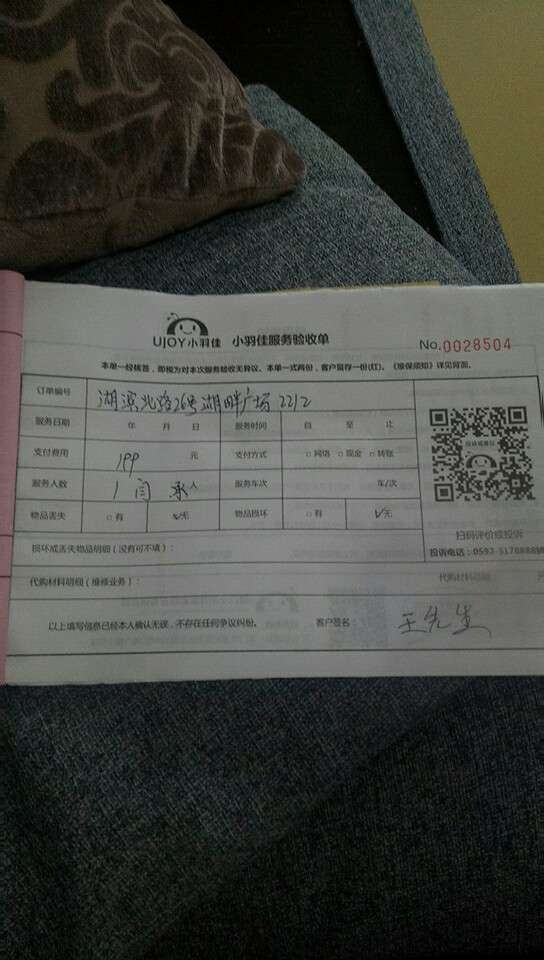 UJOY小羽佳 小羽佳服务验收单 No.0028504
本单一经核签，即视为对本次服务验收无异议。本单一式两份，客户留存一份(红)。《维保须知》详见背面。
订单编号 湖滨北路26号湖畔广场 22/2
服务日期 年 月 日 服务时间 自 至 止
支付费用 199 元 支付方式 □网络 □现金 □转账
服务人数 1 闫 人 服务车次 车/次
物品丢失 □有 ✓无 物品损坏 □有 ✓无
扫码评价或投诉
损坏或丢失物品明细（没有可不填）：
投诉电话：0592-5170888
代购材料明细（维修业务）： 代购材料 元
以上填写信息已经本人确认无误，不存在任何争议纠纷。 客户签名： 王先生